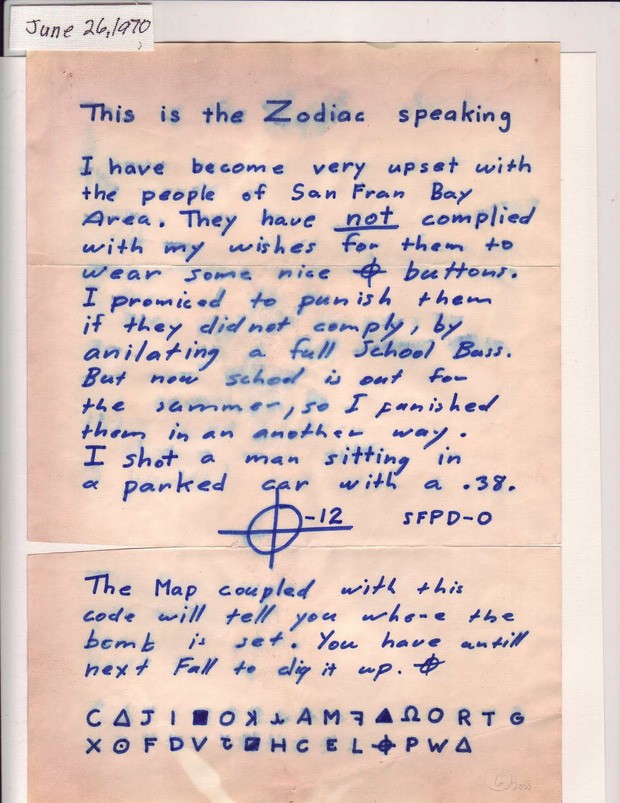 June 26, 1970
This is the Zodiac speaking
I have become very upset with
the people of San Fran Bay
Area. They have not complied
with my wishes for them to
wear some nice ⌖ buttons.
I promiced to punish them
if they did not comply, by
anilating a full School Buss.
But now school is out for
the summer, so I punished
them in an another way.
I shot a man sitting in
a parked car with a .38.
⌖-12 SFPD-0
The Map coupled with this
code will tell you where the
bomb is set. You have antill
next Fall to dig it up. ⌖
C Δ J I ■ O ʞ ⅄ A M ꟻ ▲ Ω O R T G
X ⊙ F D V ʇ ◪ H C E L ⌖ P W Δ